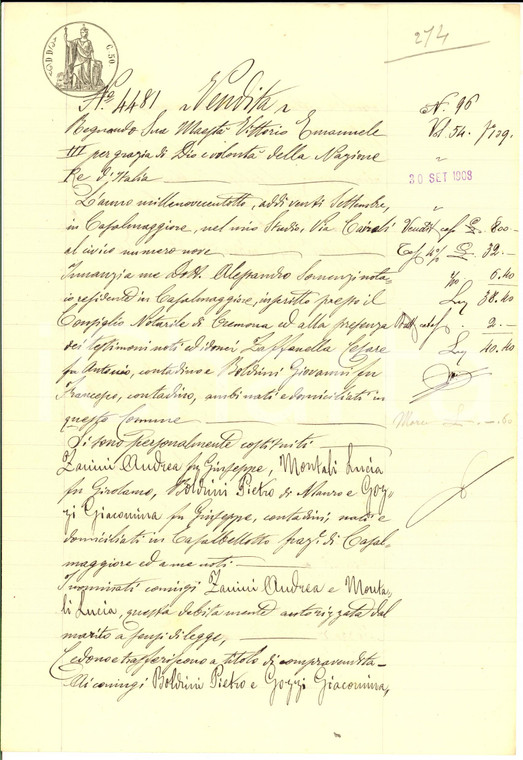 274
C. 50
N.º 4481 "Vendita"
Regnando Sua Maestà Vittorio Emanuele
III per grazia di Dio e volontà della Nazione
Re d'Italia
L'anno millenovecentotto, addì venti Settembre,
in Casalmaggiore, nel mio Studio, Via Cairoli
al civico numero nove
Innanzi a me Dott. Alessandro Somenzi nota-
io residente in Casalmaggiore, inscritto presso il
Consiglio Notarile di Cremona ed alla presenza
dei testimoni noti ed idonei Zaffanella Cesare
fu Antonio, contadino e Boldrini Giovanni fu
Francesco, contadino, ambi nati e domiciliati in
questo Comune
Si sono personalmente costituiti
Zanini Andrea fu Giuseppe, Montali Lucia
fu Girolamo, Boldrini Pietro di Mauro e Goz-
zi Giacomina fu Giuseppe, contadini, nati e
domiciliati in Casalbellotto fraz. di Casal-
maggiore ed a me noti.
I nominati coniugi Zanini Andrea e Monta-
li Lucia, questa debitamente autorizzata dal
marito a sensi di legge,
Cedono e trasferiscono a titolo di compravendita
Ai coniugi Boldrini Pietro e Gozzi Giacomina,
N. 96
Vol. 54. f 129
20 SET 1908
800
32. -
6.40
38.40
2. -
40.40